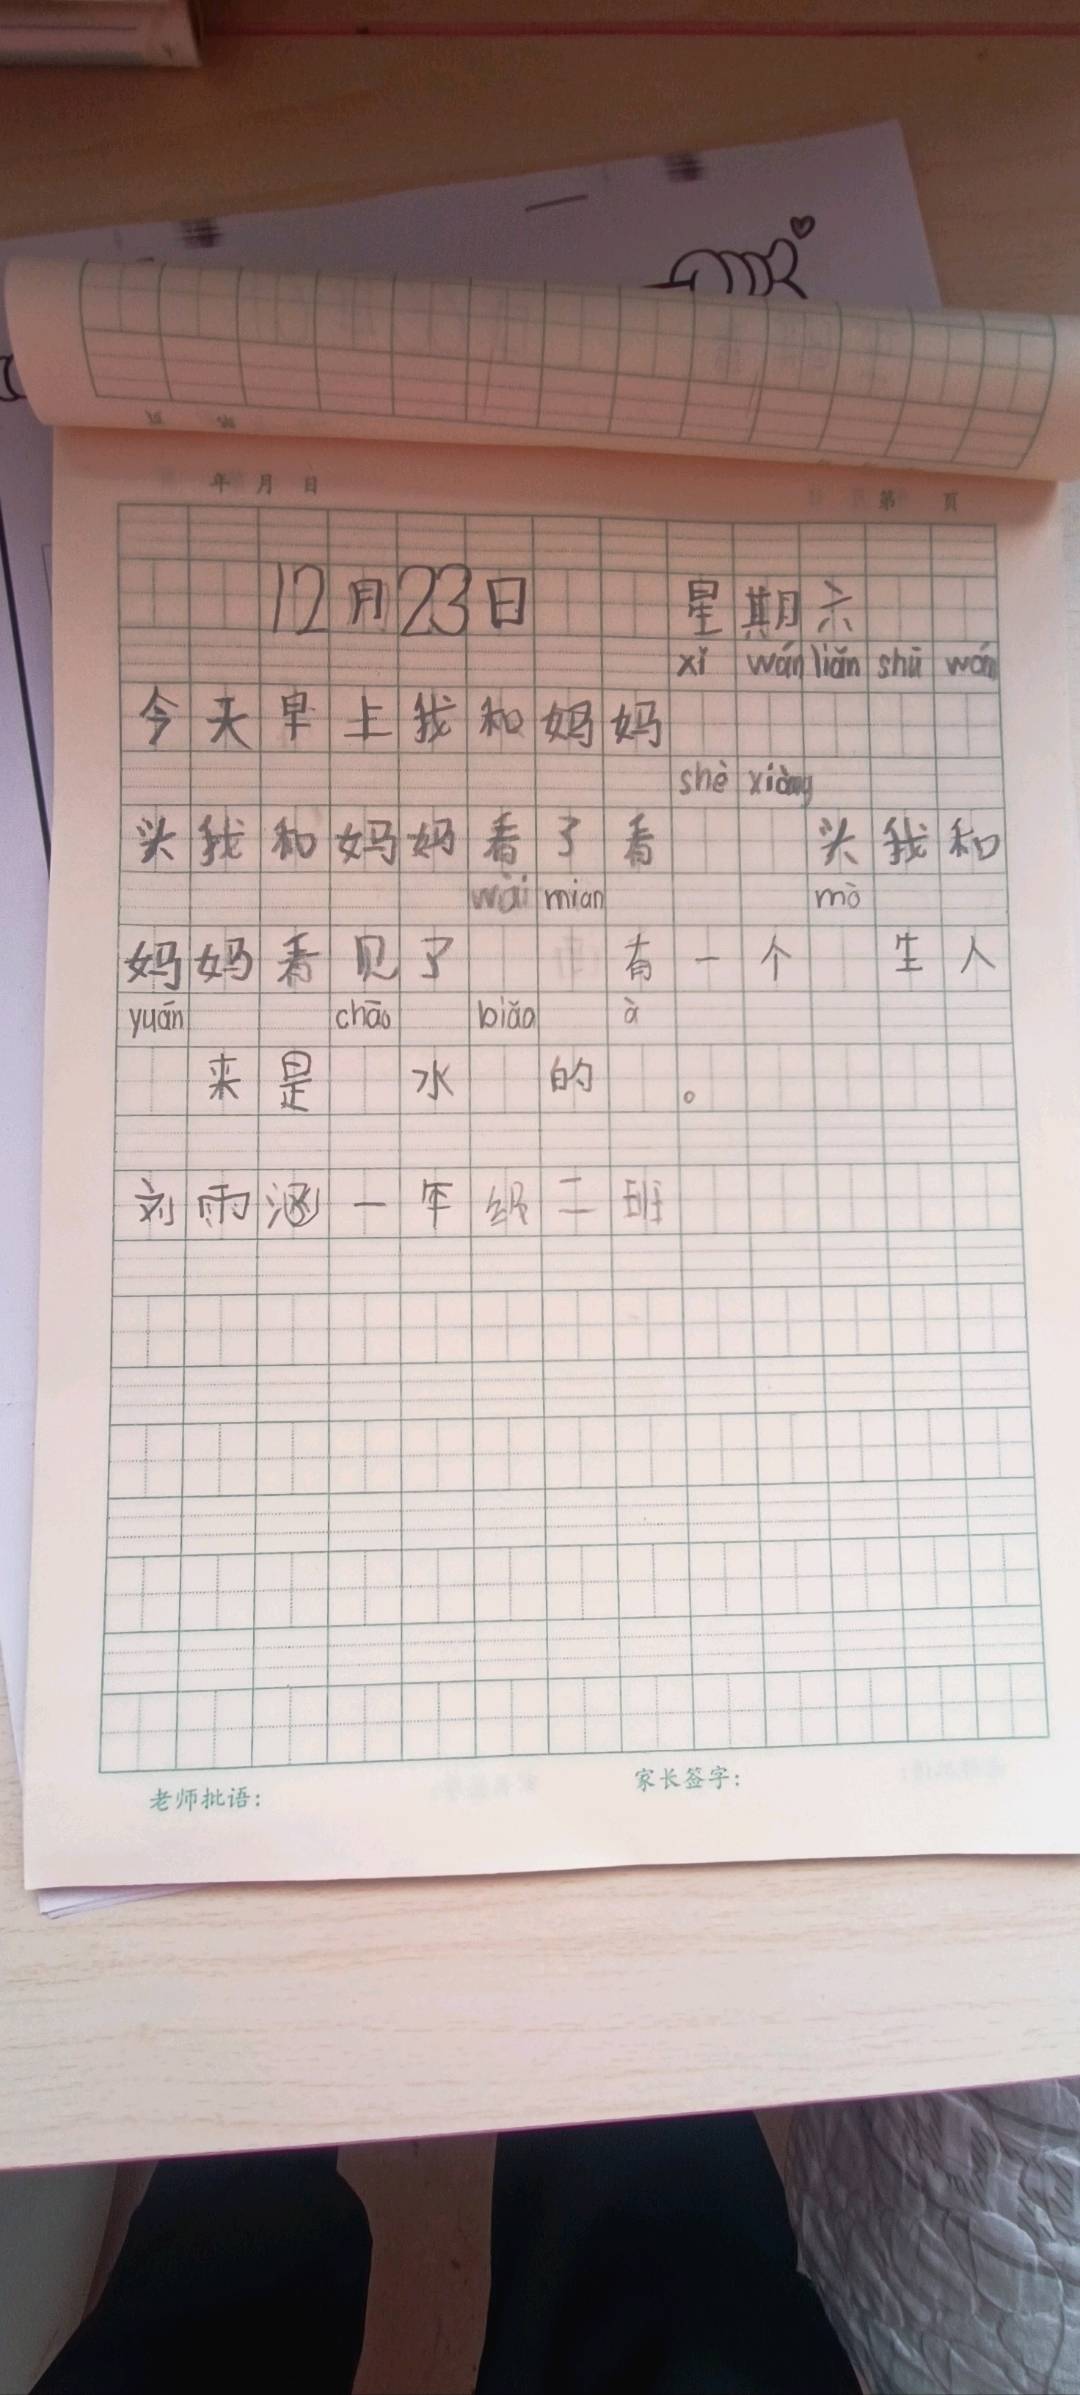 年 月 日 第 页
12月23日 星期六
xǐ wán liǎn shū wán
今天早上我和妈妈
shè xiàng
头我和妈妈看了看 头我和
wài mian mò
妈妈看见了 有一个 生人
yuán chāo biǎo à
来是 水 的 。
刘雨涵一年级二班
老师批语： 家长签字：